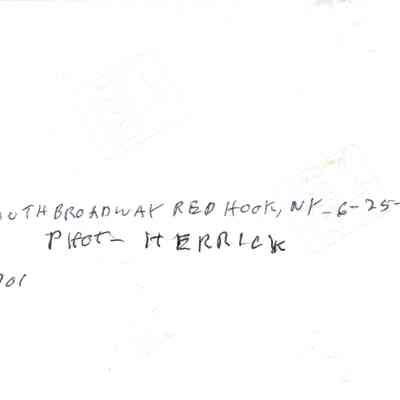 OUTH BROADWAY RED HOOK, NY-6-25-
PHOT- HERRICK
01